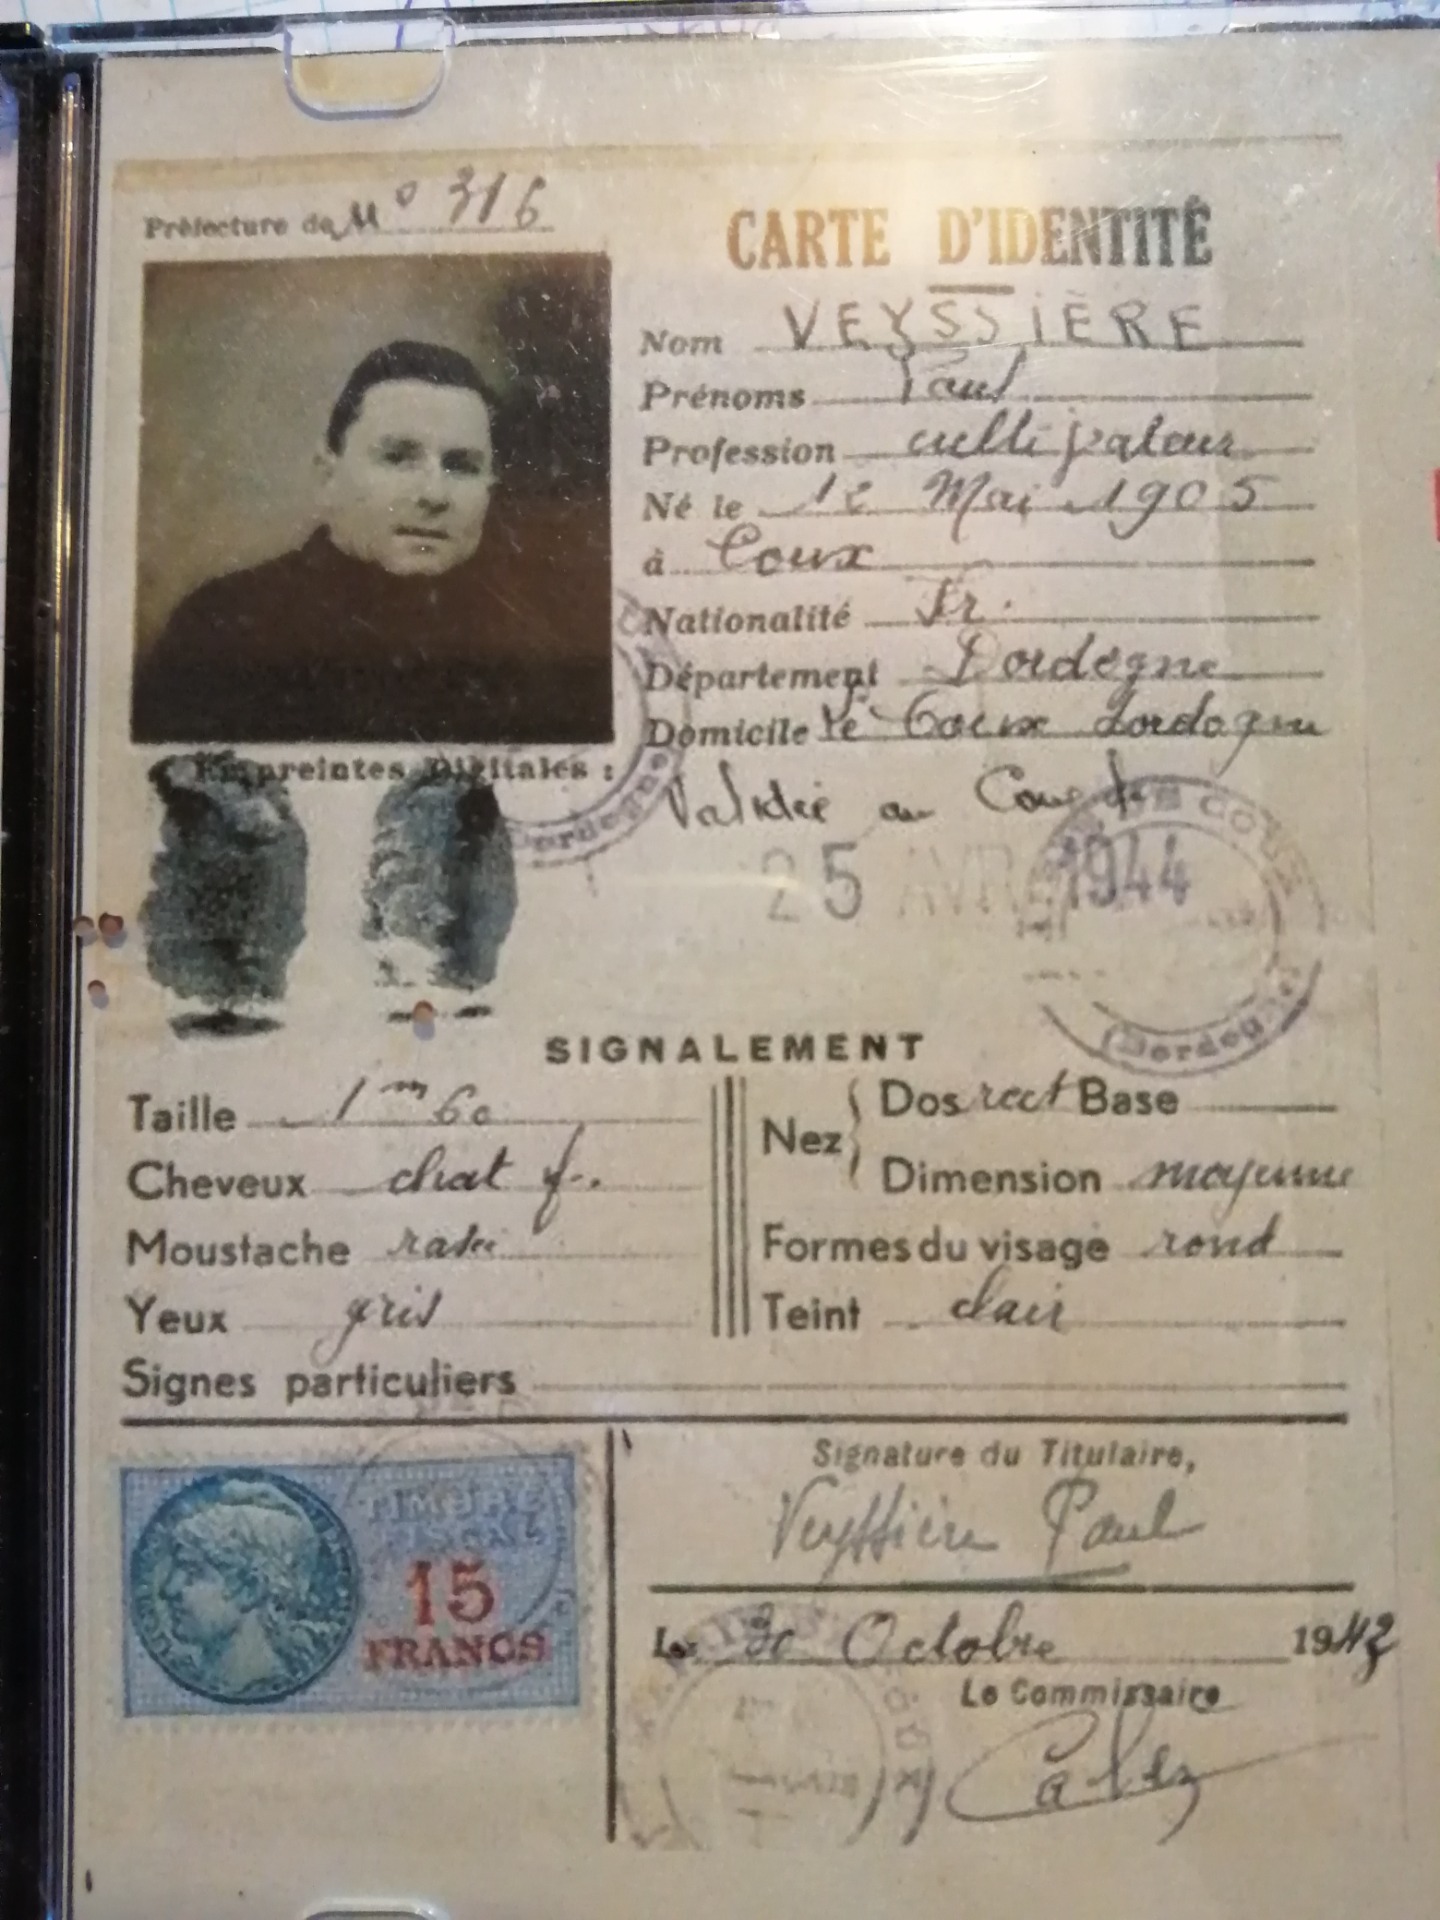 Préfecture de N° 316
CARTE D'IDENTITÉ
Nom VEYSSIÈRE
Prénoms Paul
Profession cultivateur
Né le 12 Mai 1905
à Coux
Nationalité Fr.
Département Dordogne
Domicile le Coux Dordogne
Empreintes Digitales :
Validée au Coux
25 AVR 1944
(Dordogne)
SIGNALEMENT
Taille 1m60
Cheveux chat f.
Moustache rasée
Yeux gris
Nez Dos rect Base
Dimension moyenne
Formes du visage rond
Teint clair
Signes particuliers
TIMBRE
FISCAL
15
FRANCS
Signature du Titulaire,
Veyssière Paul
Le 30 Octobre 1943
Le Commissaire